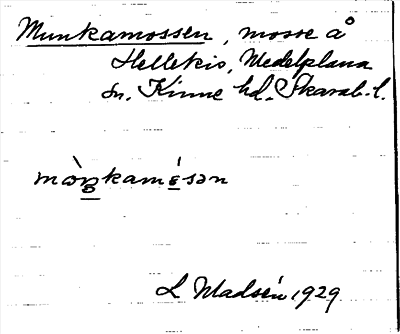 Munkamossen, mosse å
Hellekis, Medelplana
sn. Kinne hd. Skarab. l.
L Madsén 1929